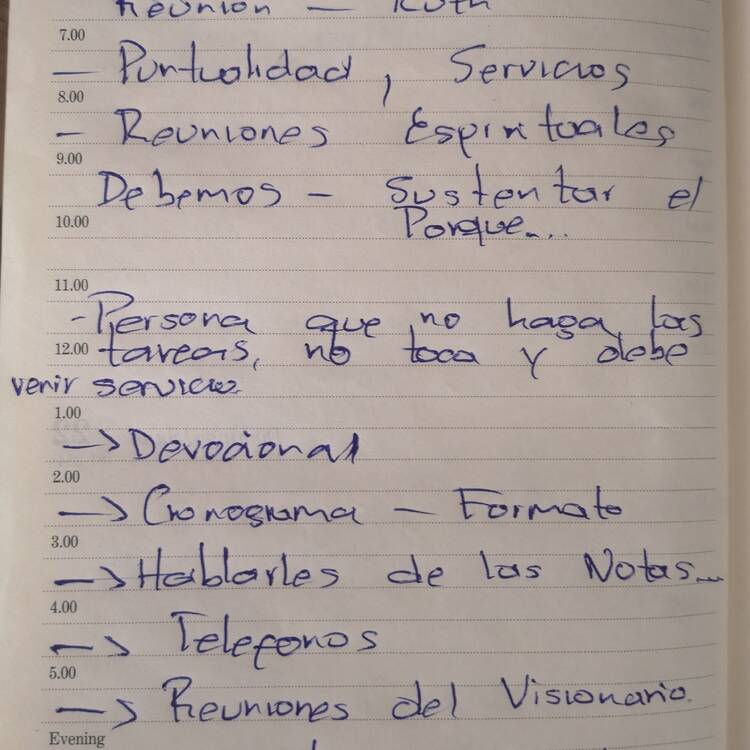 Reunion — Ruth
7.00
— Puntualidad, Servicios
8.00
- Reuniones Espirituales
9.00
Debemos - Sustentar el
10.00
Porque...
11.00
- Persona que no haga las
12.00 tareas, no toca y debe
venir servicio
1.00
—> Devocional
2.00
—> Cronograma — Formato
3.00
—> Hablarles de las Notas...
4.00
—> Telefonos
5.00
—> Reuniones del Visionario
Evening